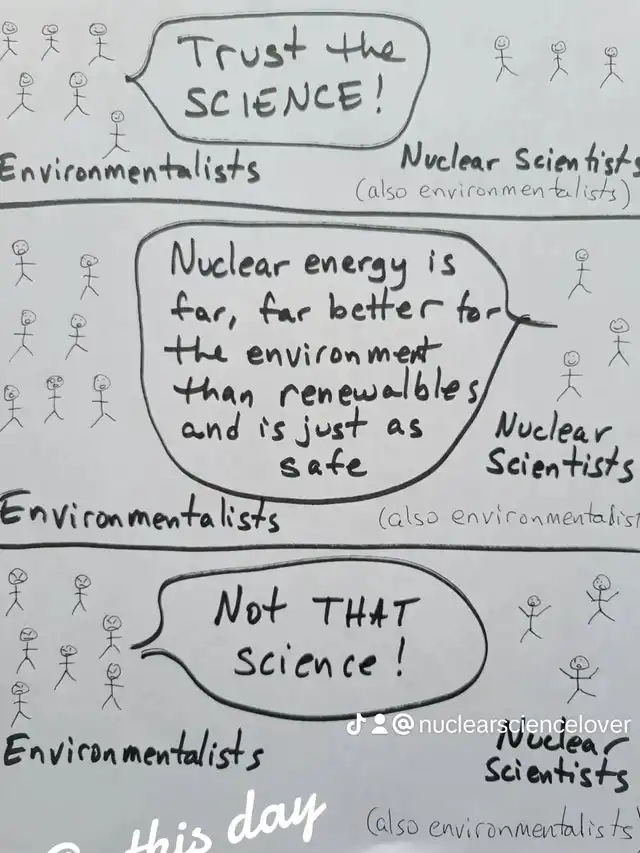 Trust the
SCIENCE!
Environmentalists
Nuclear Scientists
(also environmentalists)
Nuclear energy is
far, far better for
the environment
than renewalbles
and is just as
safe
Environmentalists
Nuclear
Scientists
(also environmentalist
Not THAT
science!
@nuclearsciencelover
Environmentalists
Nuclear
Scientists
(also environmentalists)
this day